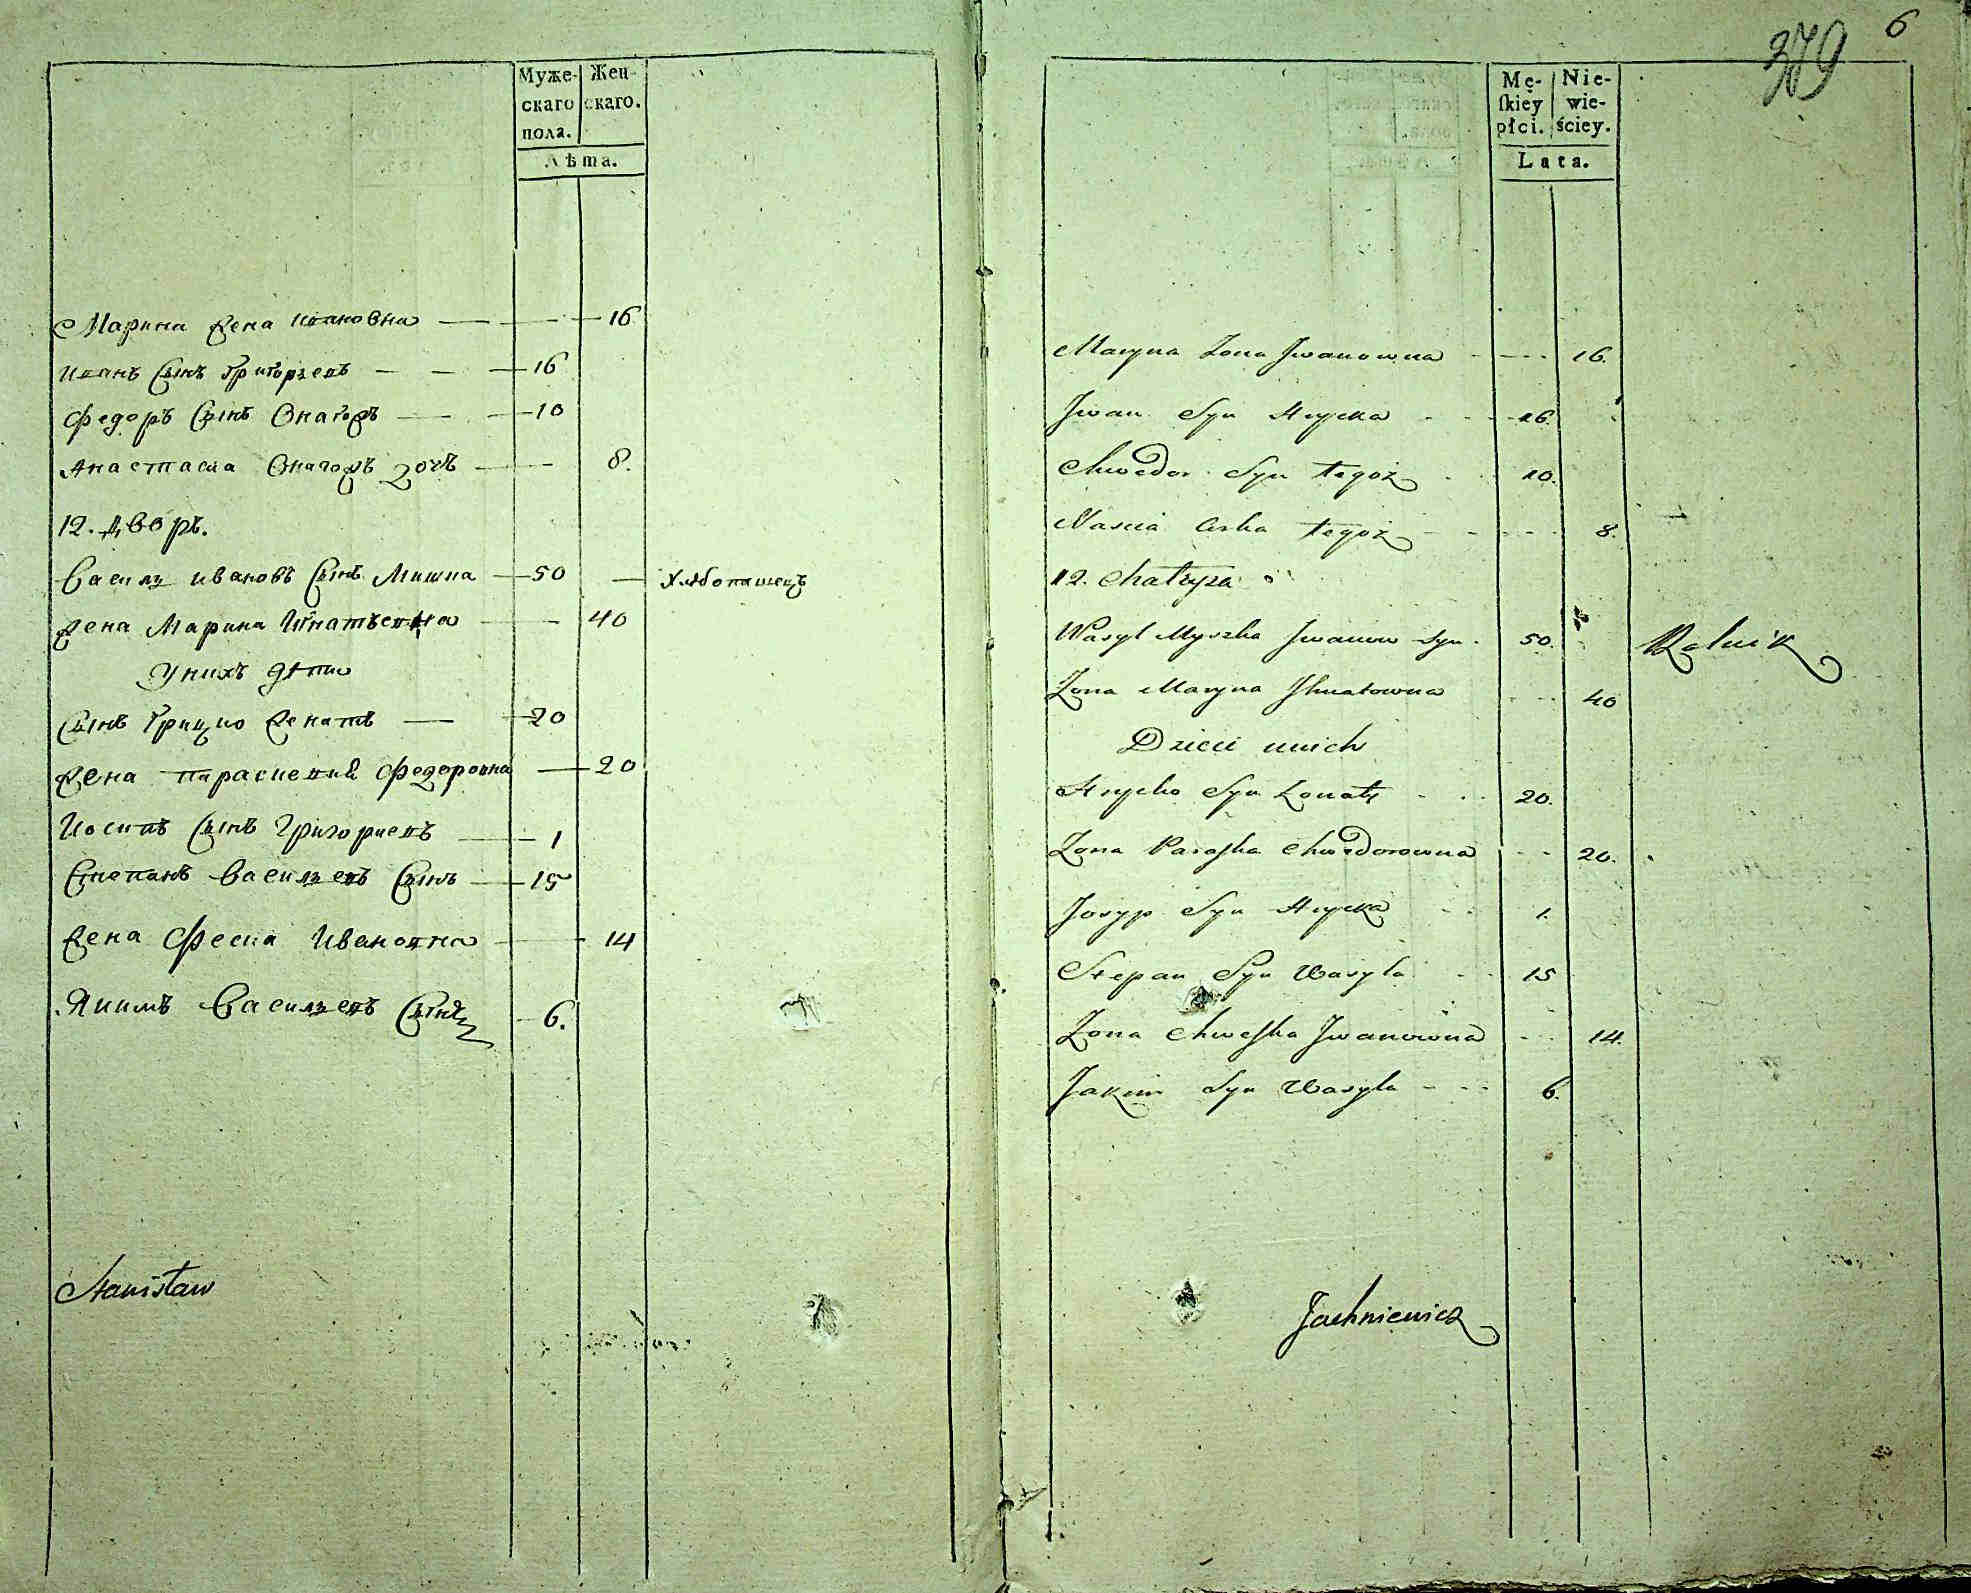 Муже- Жен-
скаго скаго.
пола.
Лѣта.
Марина Жена Ивановна — 16
Иванъ Сынъ Григорьевъ — 16
Федоръ Сынъ Онагожъ — 10
Анастасиа Онагожъ дочь — 8.
12. дворъ.
Василь Ивановъ Сынъ Мишка — 50 — Хлѣбопашецъ
Жена Марина Игнатьевна — 40
У нихъ дѣти
Сынъ Грицко Женатъ — 20
Жена Параскевия Федоровна — 20
Иосипъ Сынъ Григориевъ — 1
Степанъ Васильевъ Сынъ — 15
Жена Феска Ивановна — 14
Якимъ Васильевъ Сынъ — 6.
Stanisław
379 6
Mę- Nie-
skiey wie-
płci. ściey.
Lata.
Maryna Zona Jwanowna - - - - 16.
Jwan Syn Hrycka - - - 16.
Chwedor Syn tegoż - - 10.
Nascia Crka tegoż - - - - 8.
12. Chałupa
Wasyl Myszka Jwanow Syn. 50. Rolnik
Zona Maryna Jhnatowna - - - 40
Dzieci u nich
Hrycko Syn Zonaty - - - 20.
Zona Paraska Chwedorowna - - 20.
Josyp Syn Hrycka - - 1.
Stepan Syn Wasyla - - 15
Zona Chweska Jwanowna - - - 14.
Jakim Syn Wasyla - - - 6.
Jachniewicz